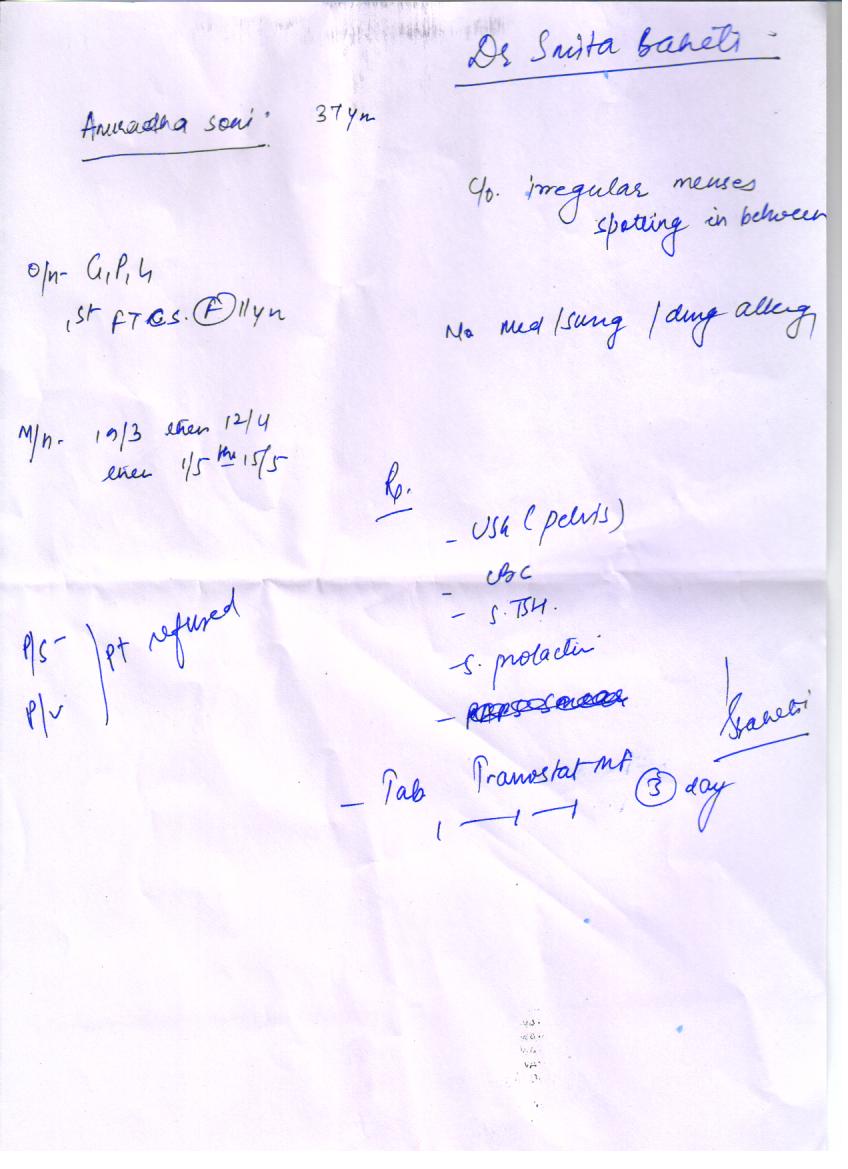 Dr Smita Baheti
Anuradha Soni 37 yrs
c/o. irregular menses
spotting in between
O/h- G1P1L1
1st FTCS. F 11yrs
No med/surg/drug allergy
M/h- 19/3 then 12/4
then 1/5 then 15/5
Rx.
- USG (pelvis)
- CBC
- S. TSH.
- S. prolactin
P/S-
P/V
pt refused
Baheti
- Tab Tranostat MF 3 day
1 — 1 — 1